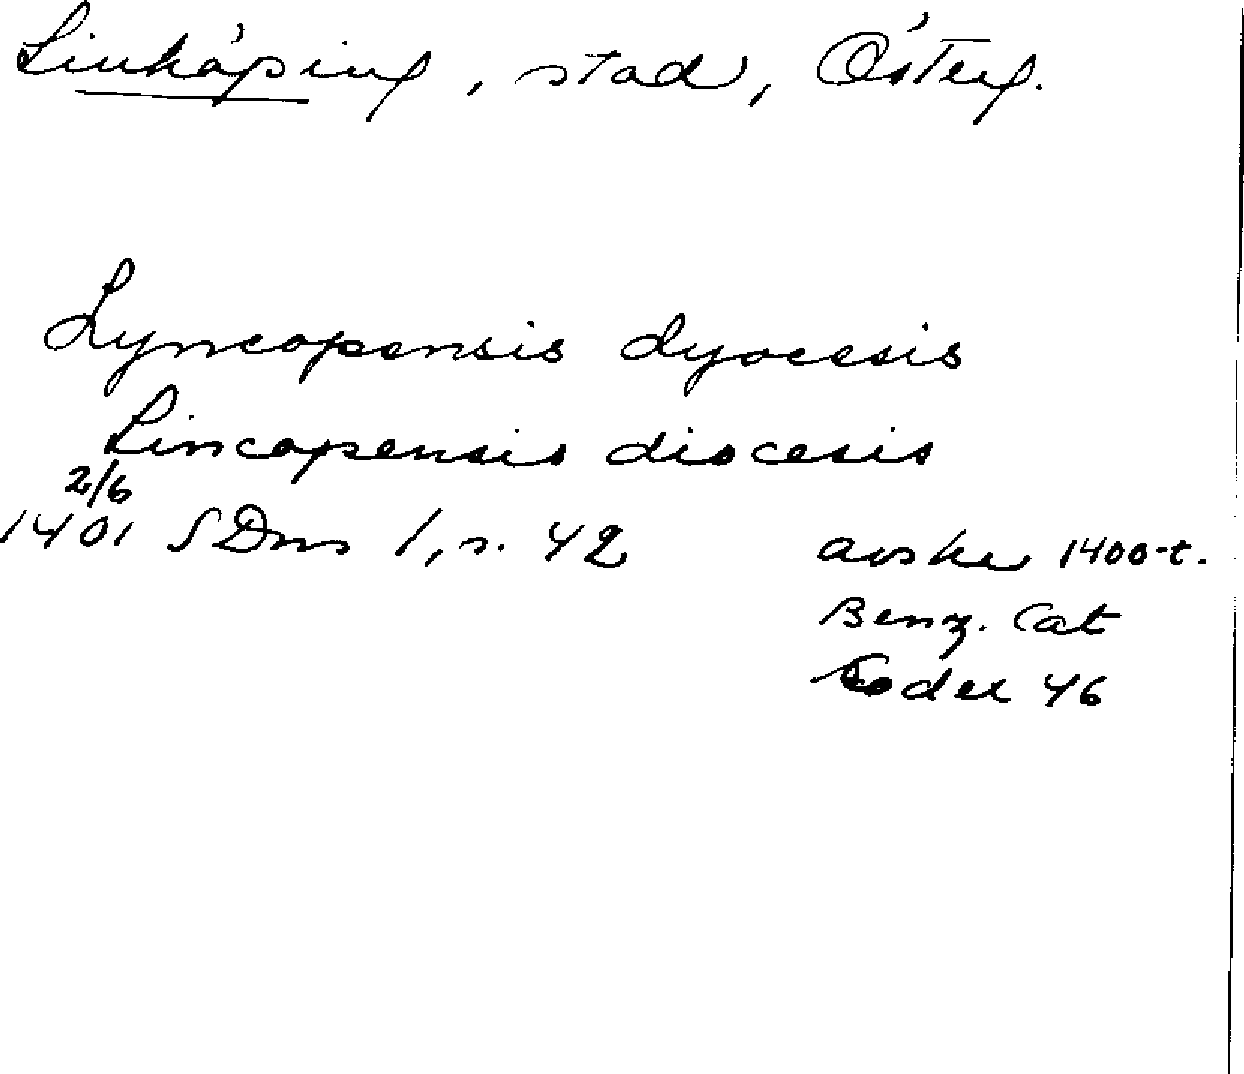 Linköping, stad, Österg.
Lyncopensis dyocesis
Lincopensis diocesis
2/6
1401 SDns 1, s. 42
avskr 1400-t.
Benz. Cat
Codex 46